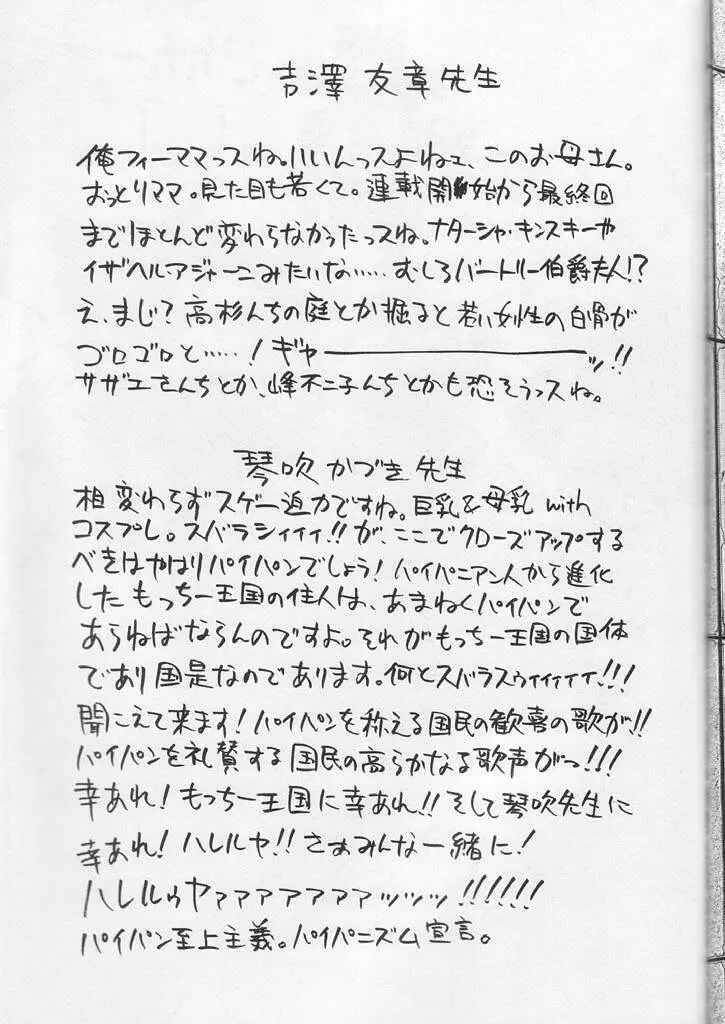 吉澤 友章先生
俺フィーママっスね。いいんっスよねェ、このお母さん。
おっとりママ。見た目も若くて。連載開始から最終回
までほとんど変わらなかったっスね。ナターシャ・キンスキーや
イザベル・アジャーニみたいな……むしろバートリー伯爵夫人!?
え、まじ?高杉んちの庭とか掘ると若い女性の白骨が
ゴロゴロと……!ギャーーーーーーーーーッ!!
サザエさんちとか、峰不二子んちとかも恐そうっスね。
琴吹かづき先生
相変わらずスゲー迫力ですね。巨乳&母乳with
コスプレ。スバラシィィィ!!が、ここでクローズアップする
べきはやはりパイパンでしょう!パイパニアン人から進化
したもっちー王国の住人は、あまねくパイパンで
あらねばならんのですよ。それがもっちー王国の国体
であり国是なのであります。何とスバラスゥィィィィィ!!!
聞こえて来ます!パイパンを称える国民の歓喜の歌が!!
パイパンを礼賛する国民の高らかなる歌声がっ!!!
幸あれ!もっちー王国に幸あれ!!そして琴吹先生に
幸あれ!ハレルヤ!!さぁみんな一緒に!
ハレルゥヤァァァァァァァッッッ!!!!!!
パイパン至上主義。パイパニズム宣言。